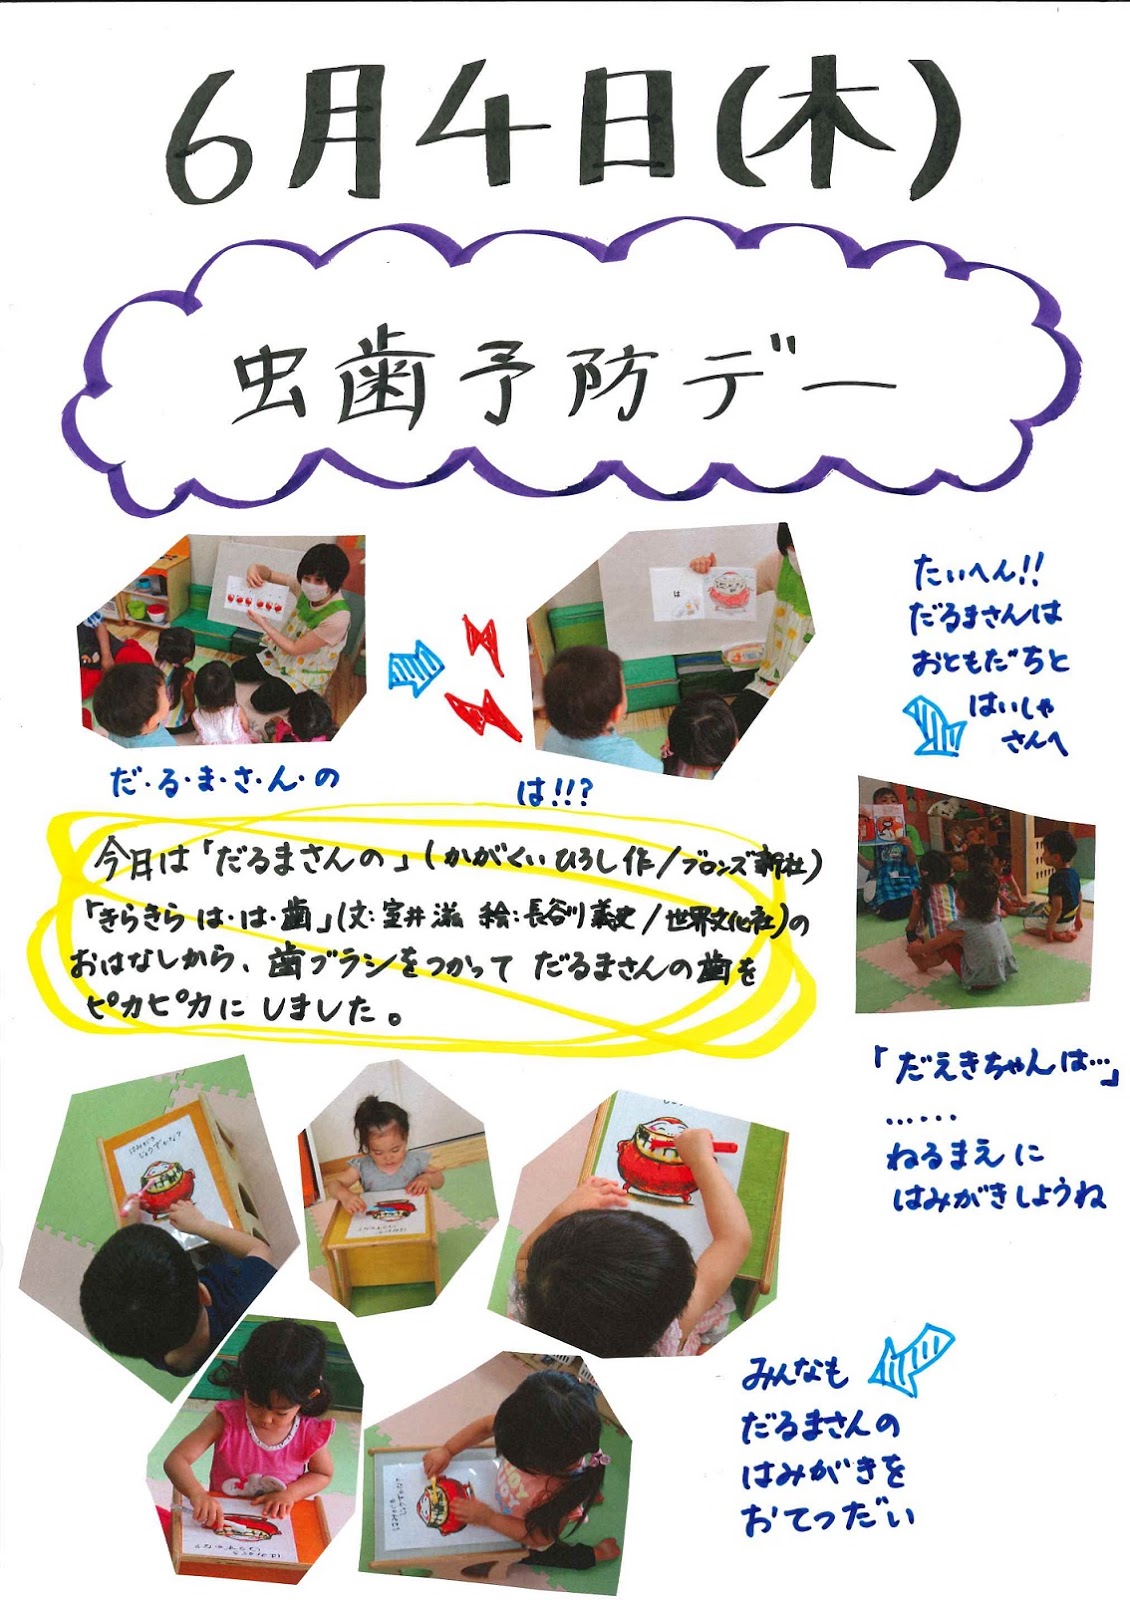 6月4日(木)
虫歯予防デー
だ・る・ま・さ・ん・の
は!!?
たいへん!!
だるまさんは
おともだちと
はいしゃ
さんへ
今日は「だるまさんの」(かがくいひろし作/ブロンズ新社)
「きらきらは・は・歯」(文:室井滋 絵:長谷川義史/世界文化社)の
おはなしから、歯ブラシをつかってだるまさんの歯を
ピカピカにしました。
「だえきちゃんは…」
……
ねるまえに
はみがきしようね
みんなも
だるまさんの
はみがきを
おてつだい
は
はみがき
じょうずかな?